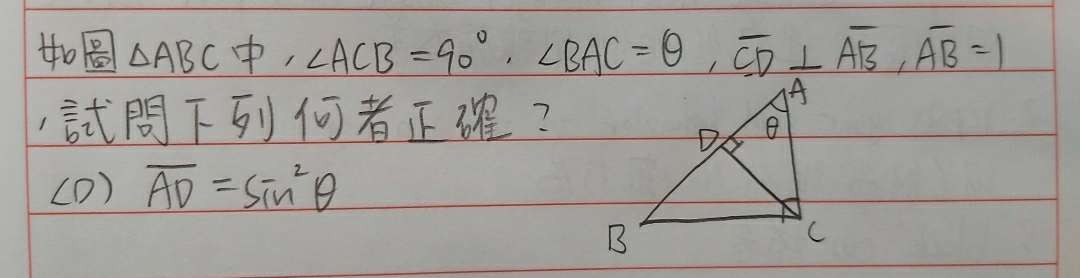 如圖△ABC中,∠ACB=90°,∠BAC=θ,C̅D̅⊥A̅B̅,A̅B̅=1
,試問下列何者正確?
(D) A̅D̅=sin²θ
A
θ
D
B
C